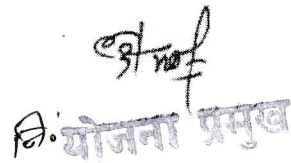 नि. योजना प्रमुख